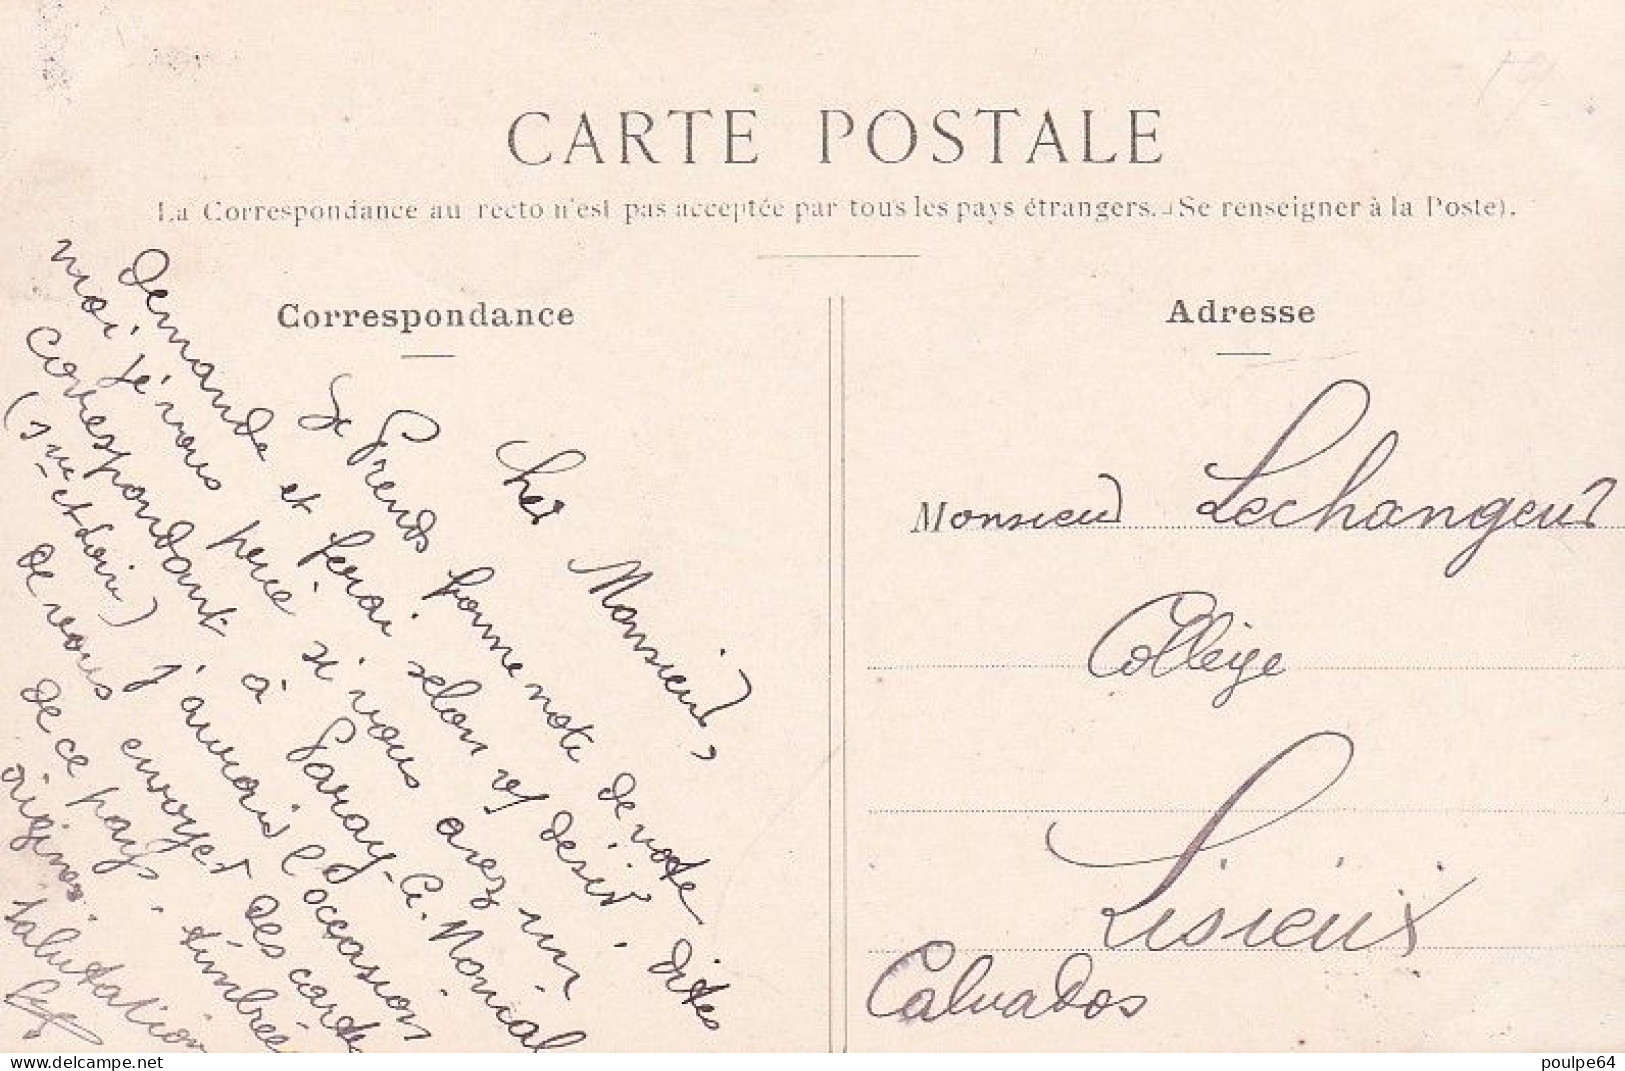 CARTE POSTALE
La Correspondance au recto n'est pas acceptée par tous les pays étrangers. (Se renseigner à la Poste).
Correspondance
Cher Monsieur,
Je Prends bonne note de votre
demande et ferai selon v/ désir. dites
moi je vous prie si vous avez un
correspondant à Paray-le-Monial
(S et Loire) j'aurais l'occasion
de vous envoyer des cartes
de ce pays. timbrée
origines.
Salutations
Adresse
Monsieur Lechangeur
Collège
Lisieux
Calvados
delcampe.net
poulpe64